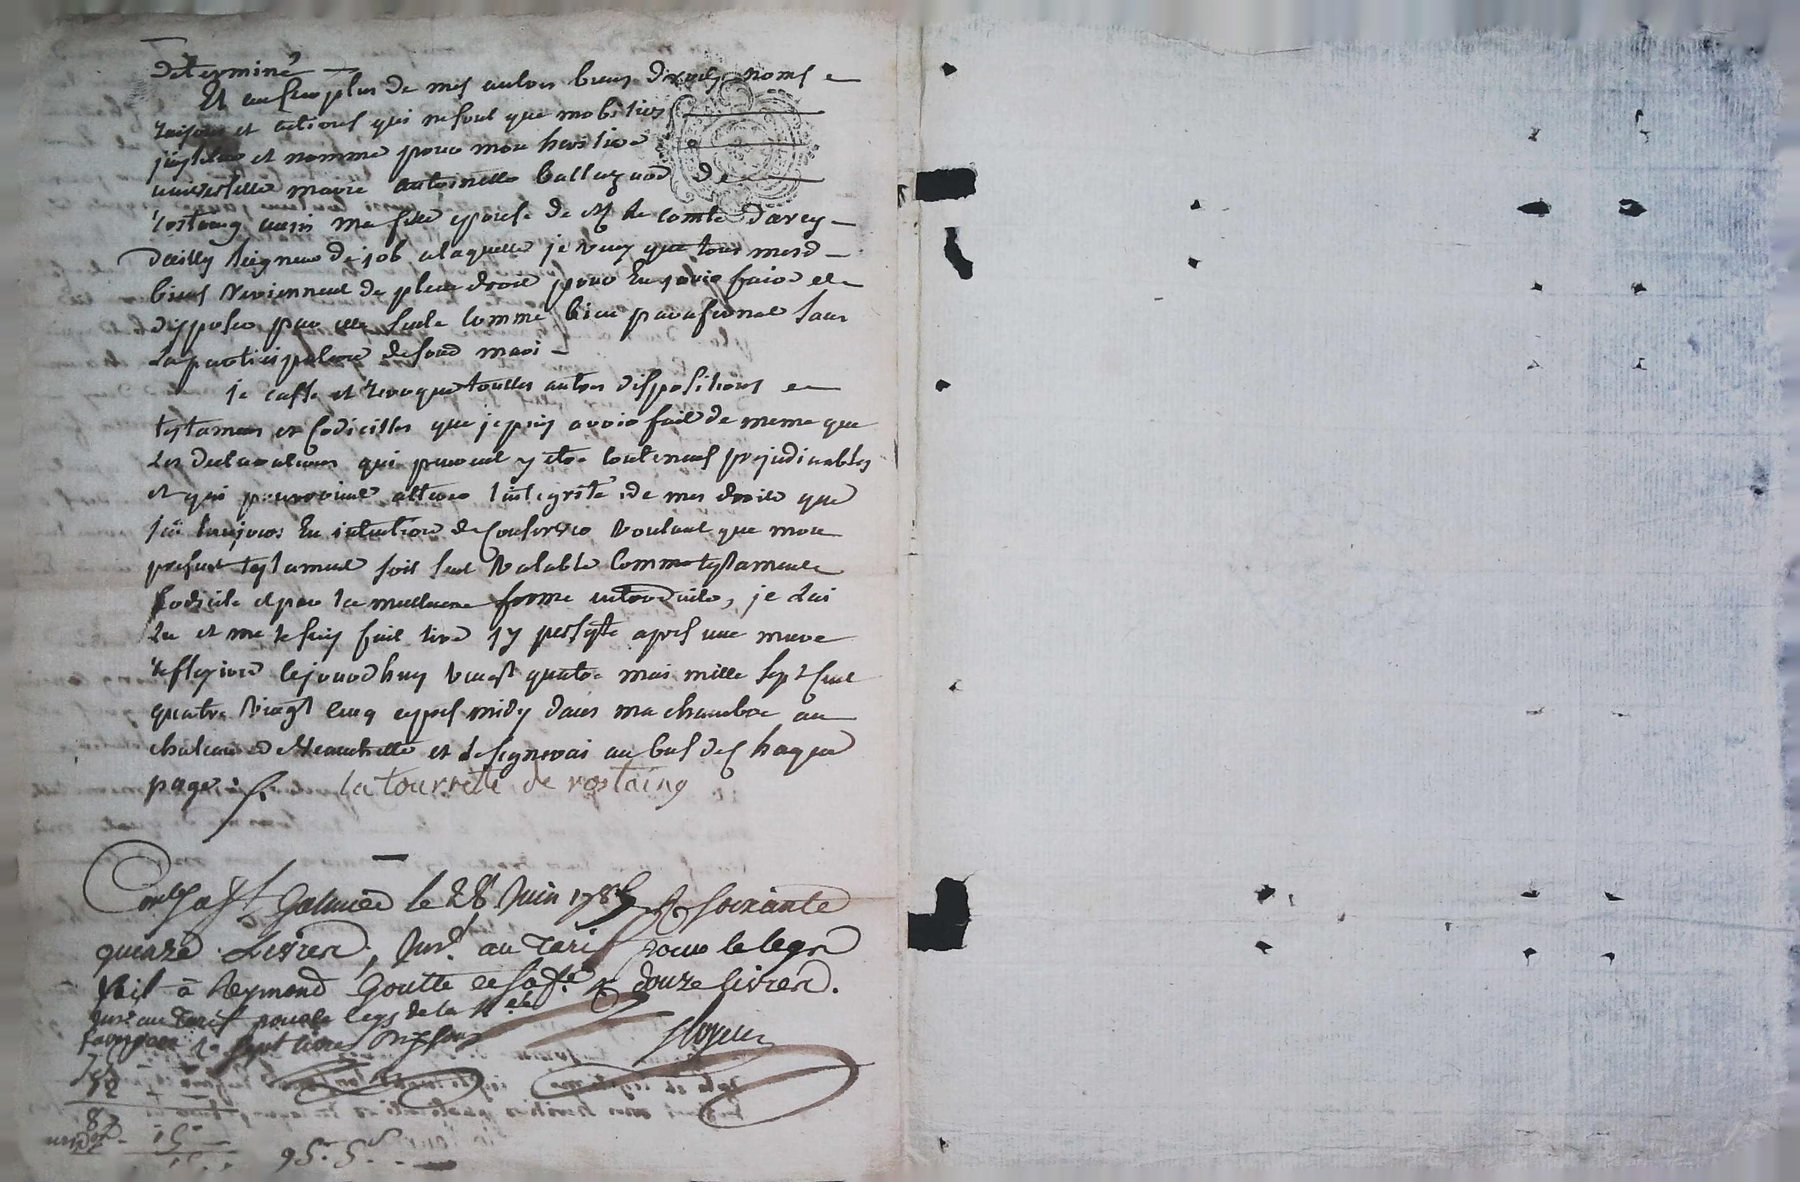 determiné
Et au surplus de mes autres biens droits noms
raisons et actions qui ne sont que mobiliers
justitue et nomme pour mon heritiere
universelle marie antoinette de
rostaing aussi ma fille epouse de M le comte Darcy
Dailly seigneur de job a laquelle je veux que tous mesd
biens reviennent de plein droit pour En jouir faire et
disposer par elle seule comme bien parafernal sans
la participation de soud mari
je casse et revoque touttes autres dispositions
testamens et codicilles que je puis avoir fait de meme que
Les declarations qui peuvent y etre contenues prejudiciables
et qui pourroient alterer l'integrité de mes droits que
j'ai toujours Eu intention de Conserver voulant que mon
present testament soit seul valable Comme testament
codicile et par la meilleure forme introduite, je l'ai
Lu et me le suis fait lire apres une mure
reflexion cejourdhuy vingt quatre mai mille sept cent
quatre vingt cinq apres midy dans ma chambre au
chateau de et le signerai au bas de chaque
page
la tourrette de rostaing
Galmier le 28 Juin 1785 R soixante
quinze Livres, au Tarif pour le legs
fait à Reymond Goutte et sa fe R douze livres.
au Tarif pour le legs de la
R sept livres
95. 5.